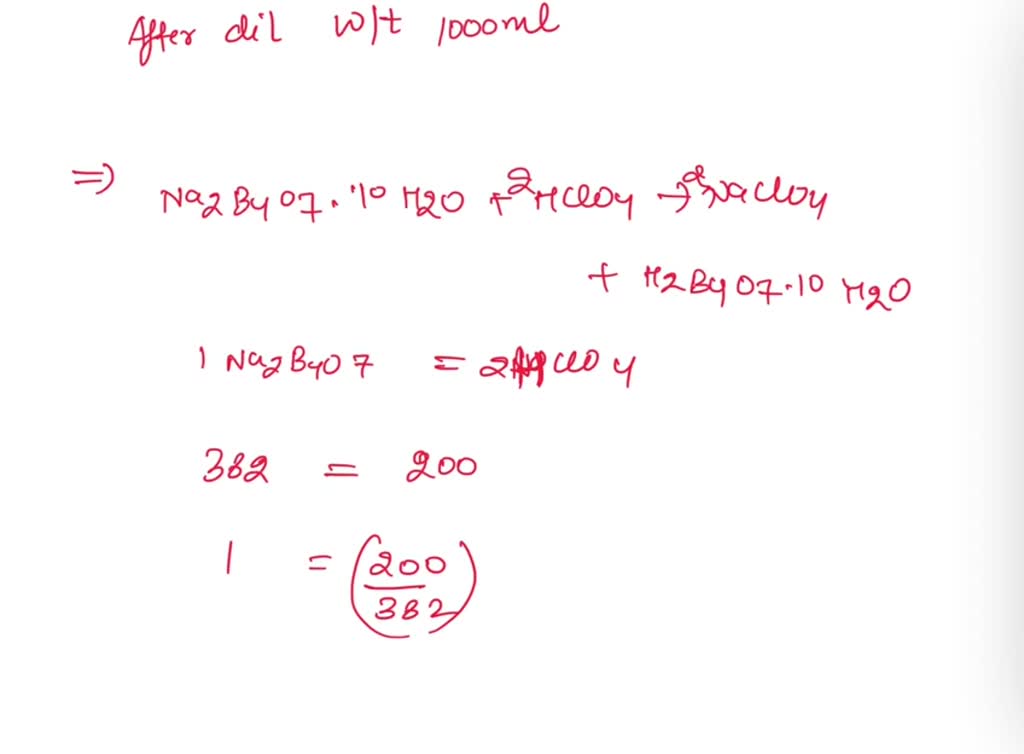 After dil w/t 1000ml
=) Na2B4O7.10 H2O + 2HClO4 → 2NaClO4
+ H2B4O7.10 H2O
1 Na2B4O7 = 2HClO4
382 = 200
1 = (200/382)